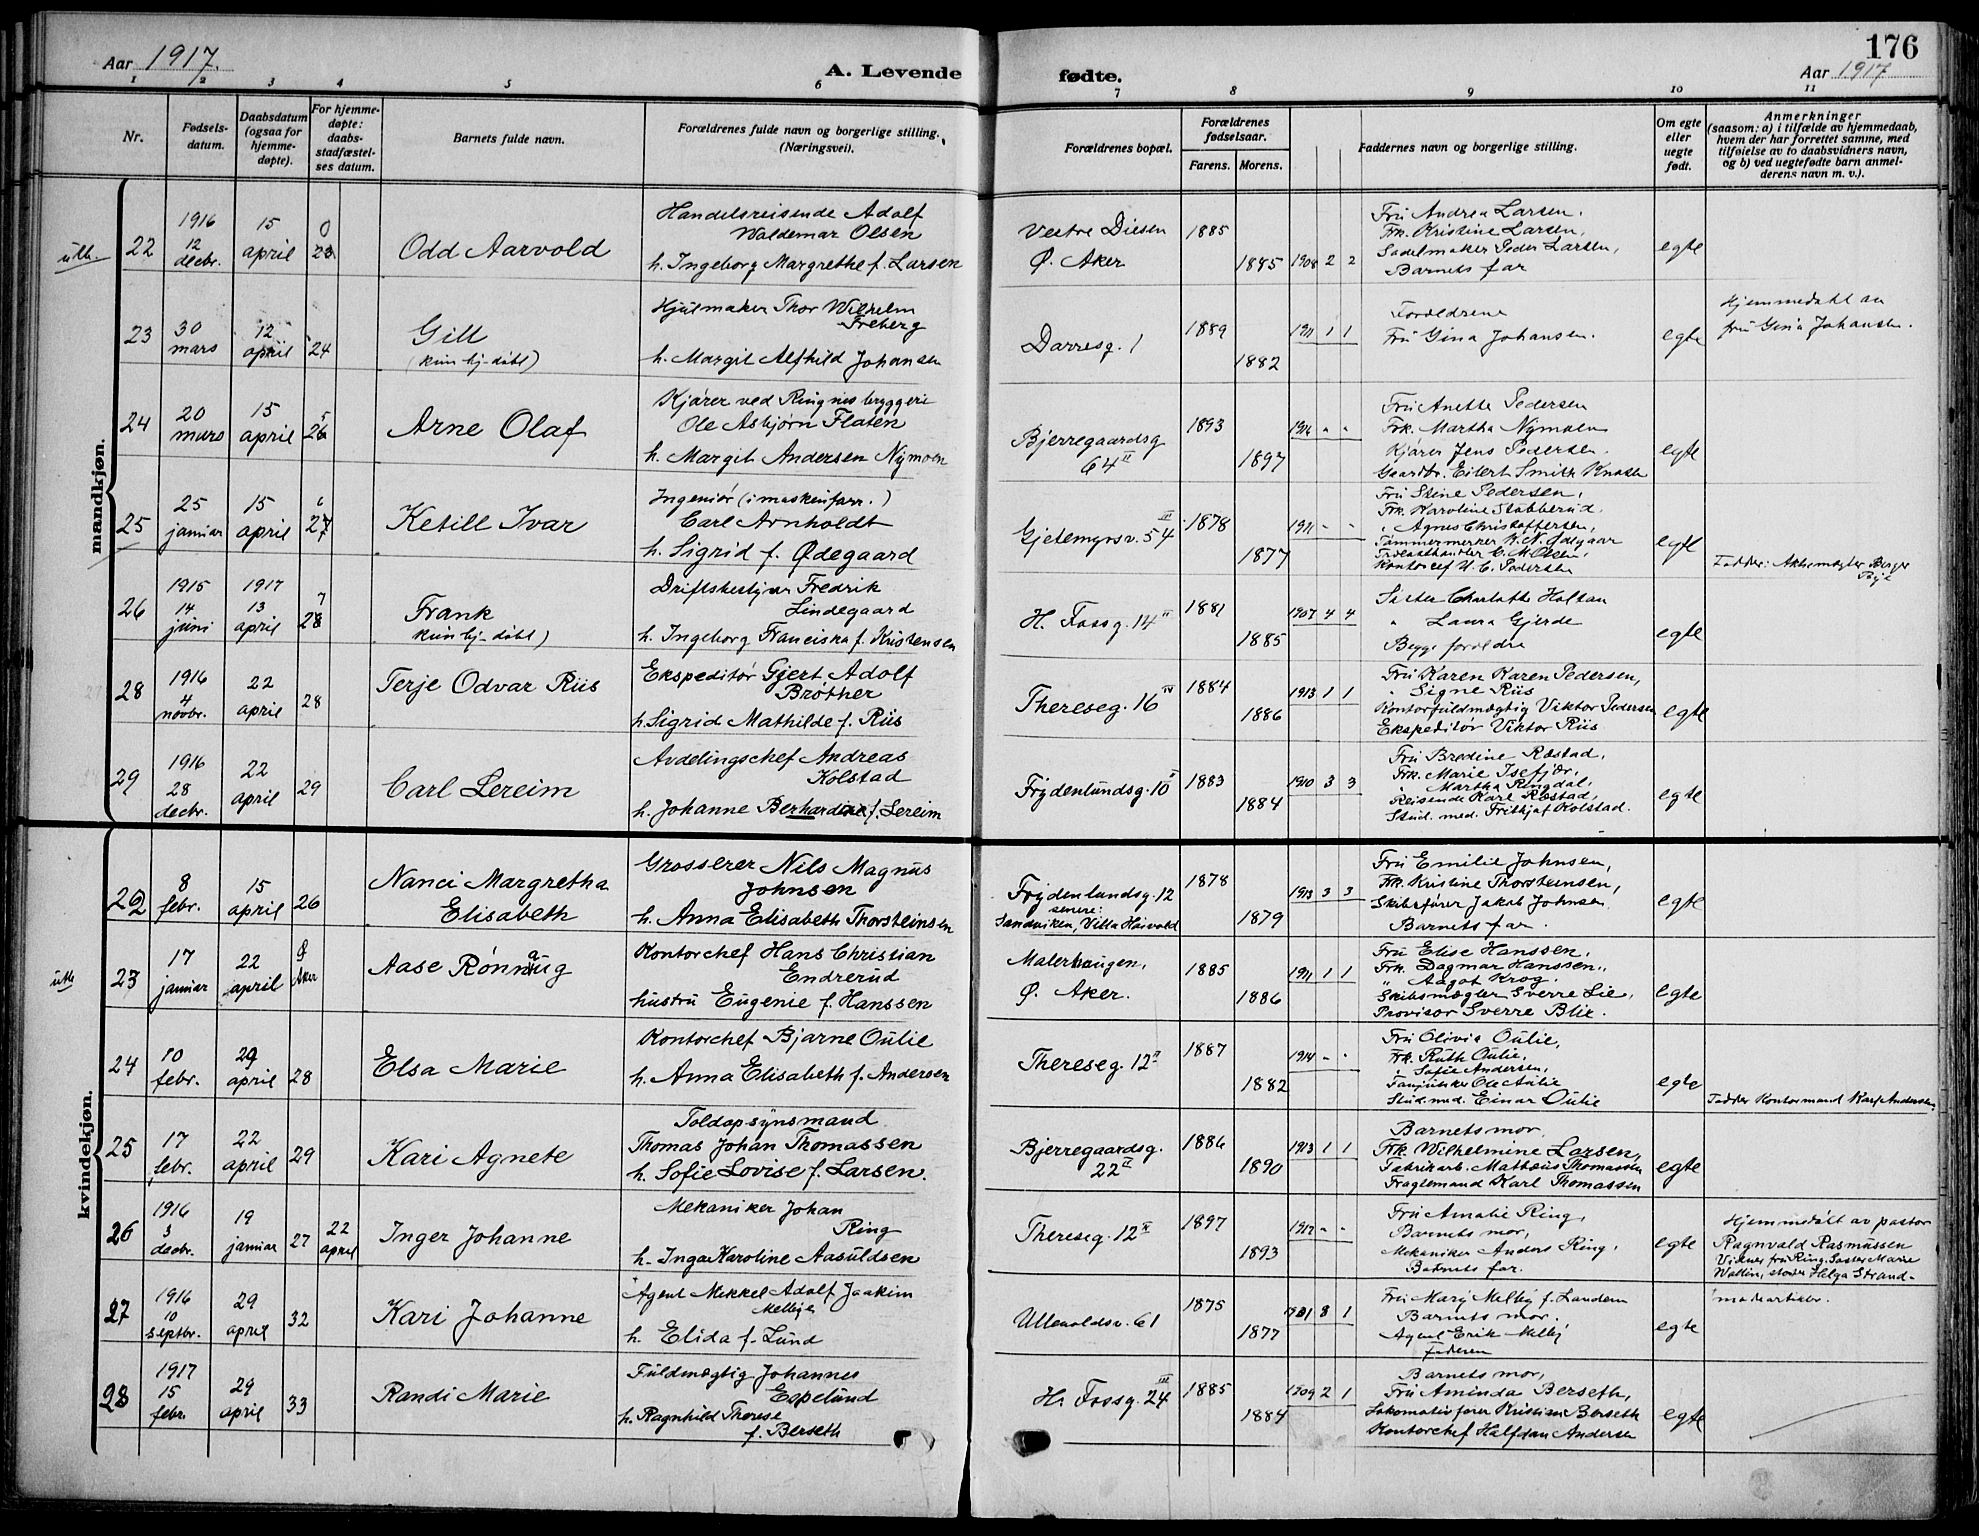 Aar 1917.
A. Levende fødte.
176
Aar 1917
1 2 3 4 5 6 7 8 9 10 11
Nr.
Fødsels-
datum.
Daabsdatum
(ogsaa for
hjemme-
døpte).
For hjemme-
døpte:
daabs-
stadfæstel-
ses datum.
Barnets fulde navn.
Forældrenes fulde navn og borgerlige stilling.
(Næringsvei).
Forældrenes bopæl.
Forældrenes
fødselsaar.
Farens. Morens.
Faddernes navn og borgerlige stilling.
Om egte
eller
uegte
født.
Anmerkninger
(saasom: a) i tilfælde av hjemmedaab,
hvem der har forrettet samme, med
tilføielse av to daabsvidners navn,
og b) ved uegtefødte barn anmel-
derens navn m. v.).
mandkjøn.
utb. 22
1916
12
decbr.
15
april
Odd Aarvold
Handelsreisende Adolf
Waldemar Olsen
h. Ingeborg Margrethe f. Larsen
Vestre Diesen
Ø. Aker
1885
1885
1908 2 2
Fru Andrea Larsen,
Frk. Kristine Larsen,
Sadelmaker Peder Larsen,
Barnets far
egte
23
30
mars
12
april
24
Gill
(kun hj-døbt)
Hjulmaker Thor Wilhelm
Freberg
h. Margit Alfhild Johansen
Darresg. 1
1889
1882
1911 1 1
Forældrene
Fru Gina Johansen.
egte
Hjemmedøbt av
fru Gina Johansen.
24
20
mars
15
april
Arne Olaf
Kjører ved Ringnes bryggeri
Ole Asbjørn Flaten
h. Margit Andersen Nymoen
Bjerregaardsg
64 II
1893
1897
1916 " "
Fru Anette Pedersen
Frk. Martha Nymoen
Kjører Jens Pedersen.
Gaardbr. Eilert Smith
egte
25
25
januar
15
april
27
Ketill Ivar
Ingeniør (i maskinfarr.)
Carl Arnholdt
h. Sigrid f. Ødegaard
Gjetemyrsv. 54 III
1878
1877
1911 - -
Fru Stine Pedersen,
Frk. Karoline Stabberud,
" Agnes Christoffersen,
Tømmermerker K. N. Ødegaar
Trælasthandler C. M. Olsen,
Kontorcef H. C. Pedersen
egte
26
1915
14
juni
1917
13
april
Frank
kun hj-døbt)
Driftsbestyrer Fredrik
Lindegaard
h. Ingeborg Franciska f. Kristensen
H. Fossg. 14 II
1881
1885
1907 4 4
Søster Charlotte Haltan
" Laura Gjerde
Begge foreldre
egte
28
1916
4
novbr.
22
april
28
Terje Odvar Riis
Ekspeditør Gjert Adolf
Brøther
h. Sigrid Mathilde f. Riis
Thereseg. 16 IV
1884
1886
1913 1 1
Fru Karen Karen Pedersen,
" Signe Riis
Kontorfuldmægtig Viktor Pedersen
Ekspeditør Viktor Riis
egte
29
1916
28
decbr.
22
april
29
Carl Lereim
Avdelingschef Andreas
Kolstad
h. Johanne Berhardine f. Lereim
Frydenlundsg. 10 II
1883
1884
1910 3 3
Fru Bredine Ræstad,
Frk. Marie Isefjær,
" Martha Ringdal,
Reisende Karl Ræstad,
Stud. med. Frithjof Kolstad.
egte
kvindekjøn.
22
8
febr.
15
april
26
Nanci Margretha
Elisabeth
Grosserer Nils Magnus
Johnsen
h. Anna Elisabeth Thorsteinsen
Frydenlundsg. 12
senere:
Sandviken, Villa Haivold
1878
1879
1913 3 3
Fru Emilie Johnsen,
Frk. Kristine Thorsteinsen,
Skibsfører Jakob Johnsen
Barnets far.
egte
utb 23
17
januar
22
april
Ø
Aker
Aase Rønnaug
Kontorchef Hans Christian
Endrerud
hustru Eugenie f. Hanssen
Malerhaugen,
Ø. Aker.
1885
1886
1911 1 1
Fru Elise Hanssen,
Frk. Dagmar Hanssen,
" Aagot Krog.
Skibsmægler Sverre Lie,
Provisor Sverre Blix.
egte
24
10
febr.
29
april
28
Elsa Marie
Kontorchef Bjarne Oulie
h. Anna Elisabeth f. Andersen
Thereseg. 12 II
1887
1882
1914 - -
Fru Olivia Oulie,
Frk. Ruth Oulie,
" Sofie Andersen,
Stud. med. Einar Oulie
egte
Fadder Kontormand Karl Andersen,
25
17
febr.
22
april
29
Kari Agnete
Toldopsynsmand
Thomas Johan Thomassen
h. Sofie Lovise f. Larsen.
Bjerregaardsg.
22 II
1886
1890
1913 1 1
Barnets mor,
Frk. Wilhelmine Larsen,
Fabrikarb. Mathæus Thomassen
Fragtemand Karl Thomassen
egte
26
1916
3
decbr.
19
januar
27
22
april
Inger Johanne
Mekaniker Johan
Ring
h. Inga Karoline Aasuldsen
Thereseg. 12
1897
1893
1917 - -
Fru Amalie Ring,
Barnets mor,
Mekaniker Anders Ring,
Barnets far.
egte
Hjemmedøbt av pastor
Ragnvald Rasmussen
Vidner fru Ring, Søster Marie
Wallin, Helga Strand-
27
1916
10
septbr.
29
april
32
Kari Johanne
Agent Mikkel Adolf Joakim
Melbye
h. Elida f. Lund
Ullevoldsv. 61
1875
1877
Fru Mary Melby f. Landem
Barnets mor.
Agent Erik Melby
faderen
egte
28
1917
15
febr.
29
april
33
Randi Marie
Fuldmægtig Johannes
Espelund
h. Ragnhild Therese
f. Berseth
H. Fossg. 24 III
1885
1884
1909 2 1
Barnets mor,
Fru Aminda Berseth,
Lokomotivfører Kristian Berseth
Kontorchef Halfdan Andersen
egte